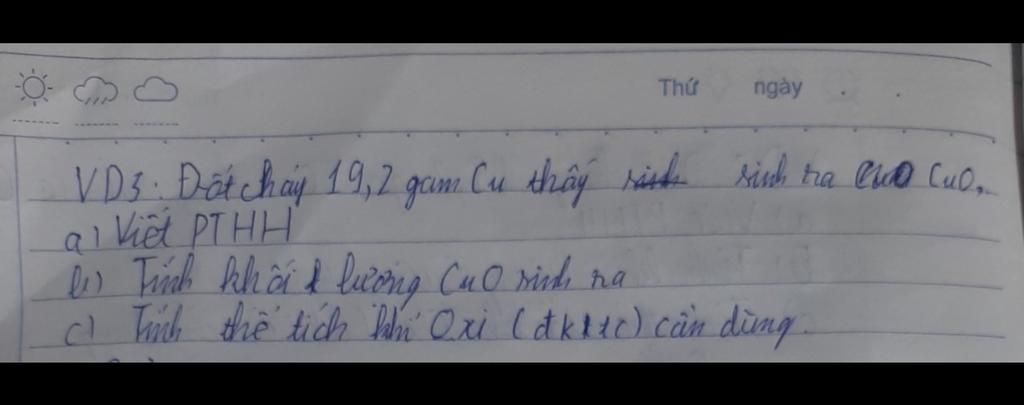 Thứ ngày
VD3: Đốt cháy 19,2 gam Cu thấy sinh ra CuO.
a) Viết PTHH
b) Tính khối lượng CuO sinh ra
c) Tính thể tích khí Oxi (đktc) cần dùng.